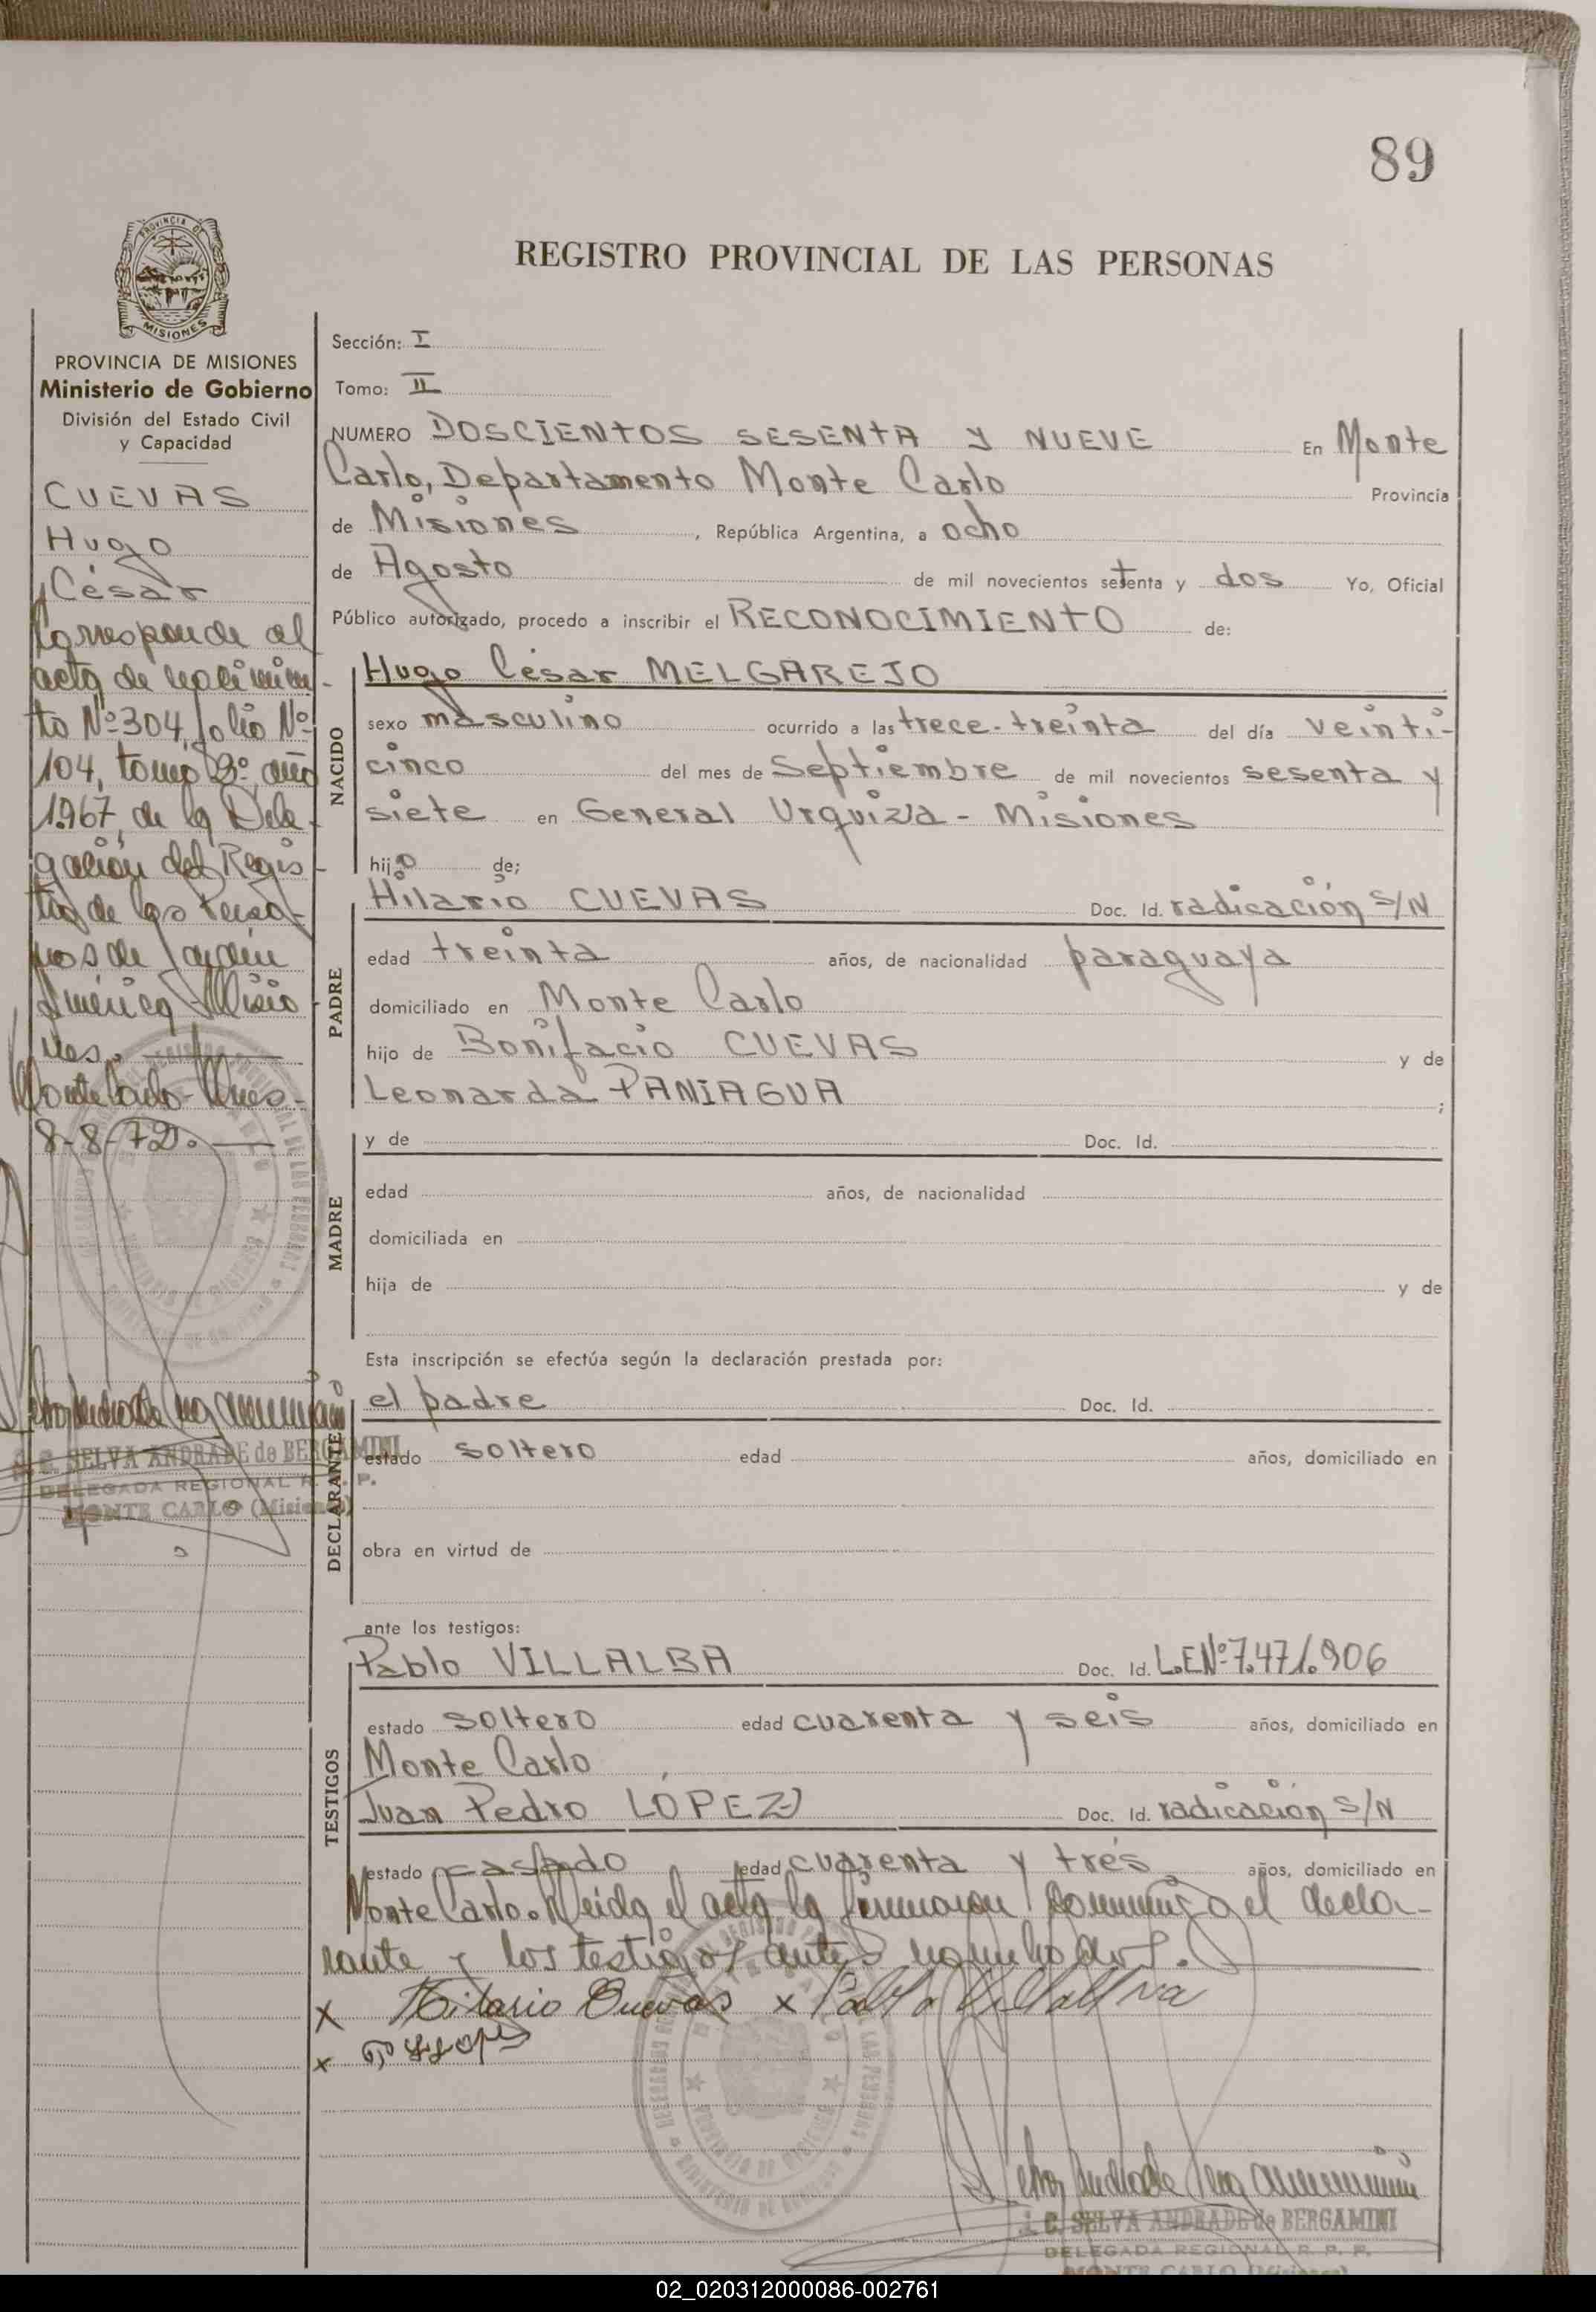 89
REGISTRO PROVINCIAL DE LAS PERSONAS
PROVINCIA DE
MISIONES
PROVINCIA DE MISIONES
Ministerio de Gobierno
División del Estado Civil
y Capacidad
CUEVAS
Hugo
César
Corresponde al
acta de nacimien-
to Nº 304, folio Nº
104, tomo 2º, año
1967, de la Dele-
gación del Regis-
tro de las Perso-
nas de Jardín
América Misio-
nes.
Monte Carlo - Mnes -
8-8-72.
S. C. SELVA ANDRADE de BERGAMINI
DELEGADA REGIONAL R. P. P.
MONTE CARLO (Misiones)
Sección: I
Tomo: II
NUMERO DOSCIENTOS SESENTA Y NUEVE En Monte
Carlo, Departamento Monte Carlo Provincia
de Misiones, República Argentina, a ocho
de Agosto de mil novecientos setenta y dos Yo, Oficial
Público autorizado, procedo a inscribir el RECONOCIMIENTO de:
NACIDO
Hugo César MELGAREJO
sexo masculino ocurrido a las trece-treinta del día veinti-
cinco del mes de Septiembre de mil novecientos sesenta y
siete en General Urquiza - Misiones
hijo de;
PADRE
Hilario CUEVAS Doc. Id. radicación S/N
edad treinta años, de nacionalidad paraguaya
domiciliado en Monte Carlo
hijo de Bonifacio CUEVAS y de
Leonarda PANIAGUA ;
MADRE
y de Doc. Id.
edad años, de nacionalidad
domiciliada en
hija de y de
Esta inscripción se efectúa según la declaración prestada por:
DECLARANTE
el padre Doc. Id.
estado soltero edad años, domiciliado en
obra en virtud de
ante los testigos:
TESTIGOS
Pablo VILLALBA Doc. Id. L.E Nº 7.471.906
estado soltero edad cuarenta y seis años, domiciliado en
Monte Carlo
Juan Pedro LÓPEZ Doc. Id. radicación S/N
estado casado edad cuarenta y trés años, domiciliado en
Monte Carlo. Leida el acta la firmaron conmigo el decla-
rante y los testigos antes nombrados.
x Hilario Cuevas x Pablo Villalva
x
S. C. SELVA ANDRADE de BERGAMINI
DELEGADA REGIONAL R. P. P.
MONTE CARLO (Misiones)
02_020312000086-002761